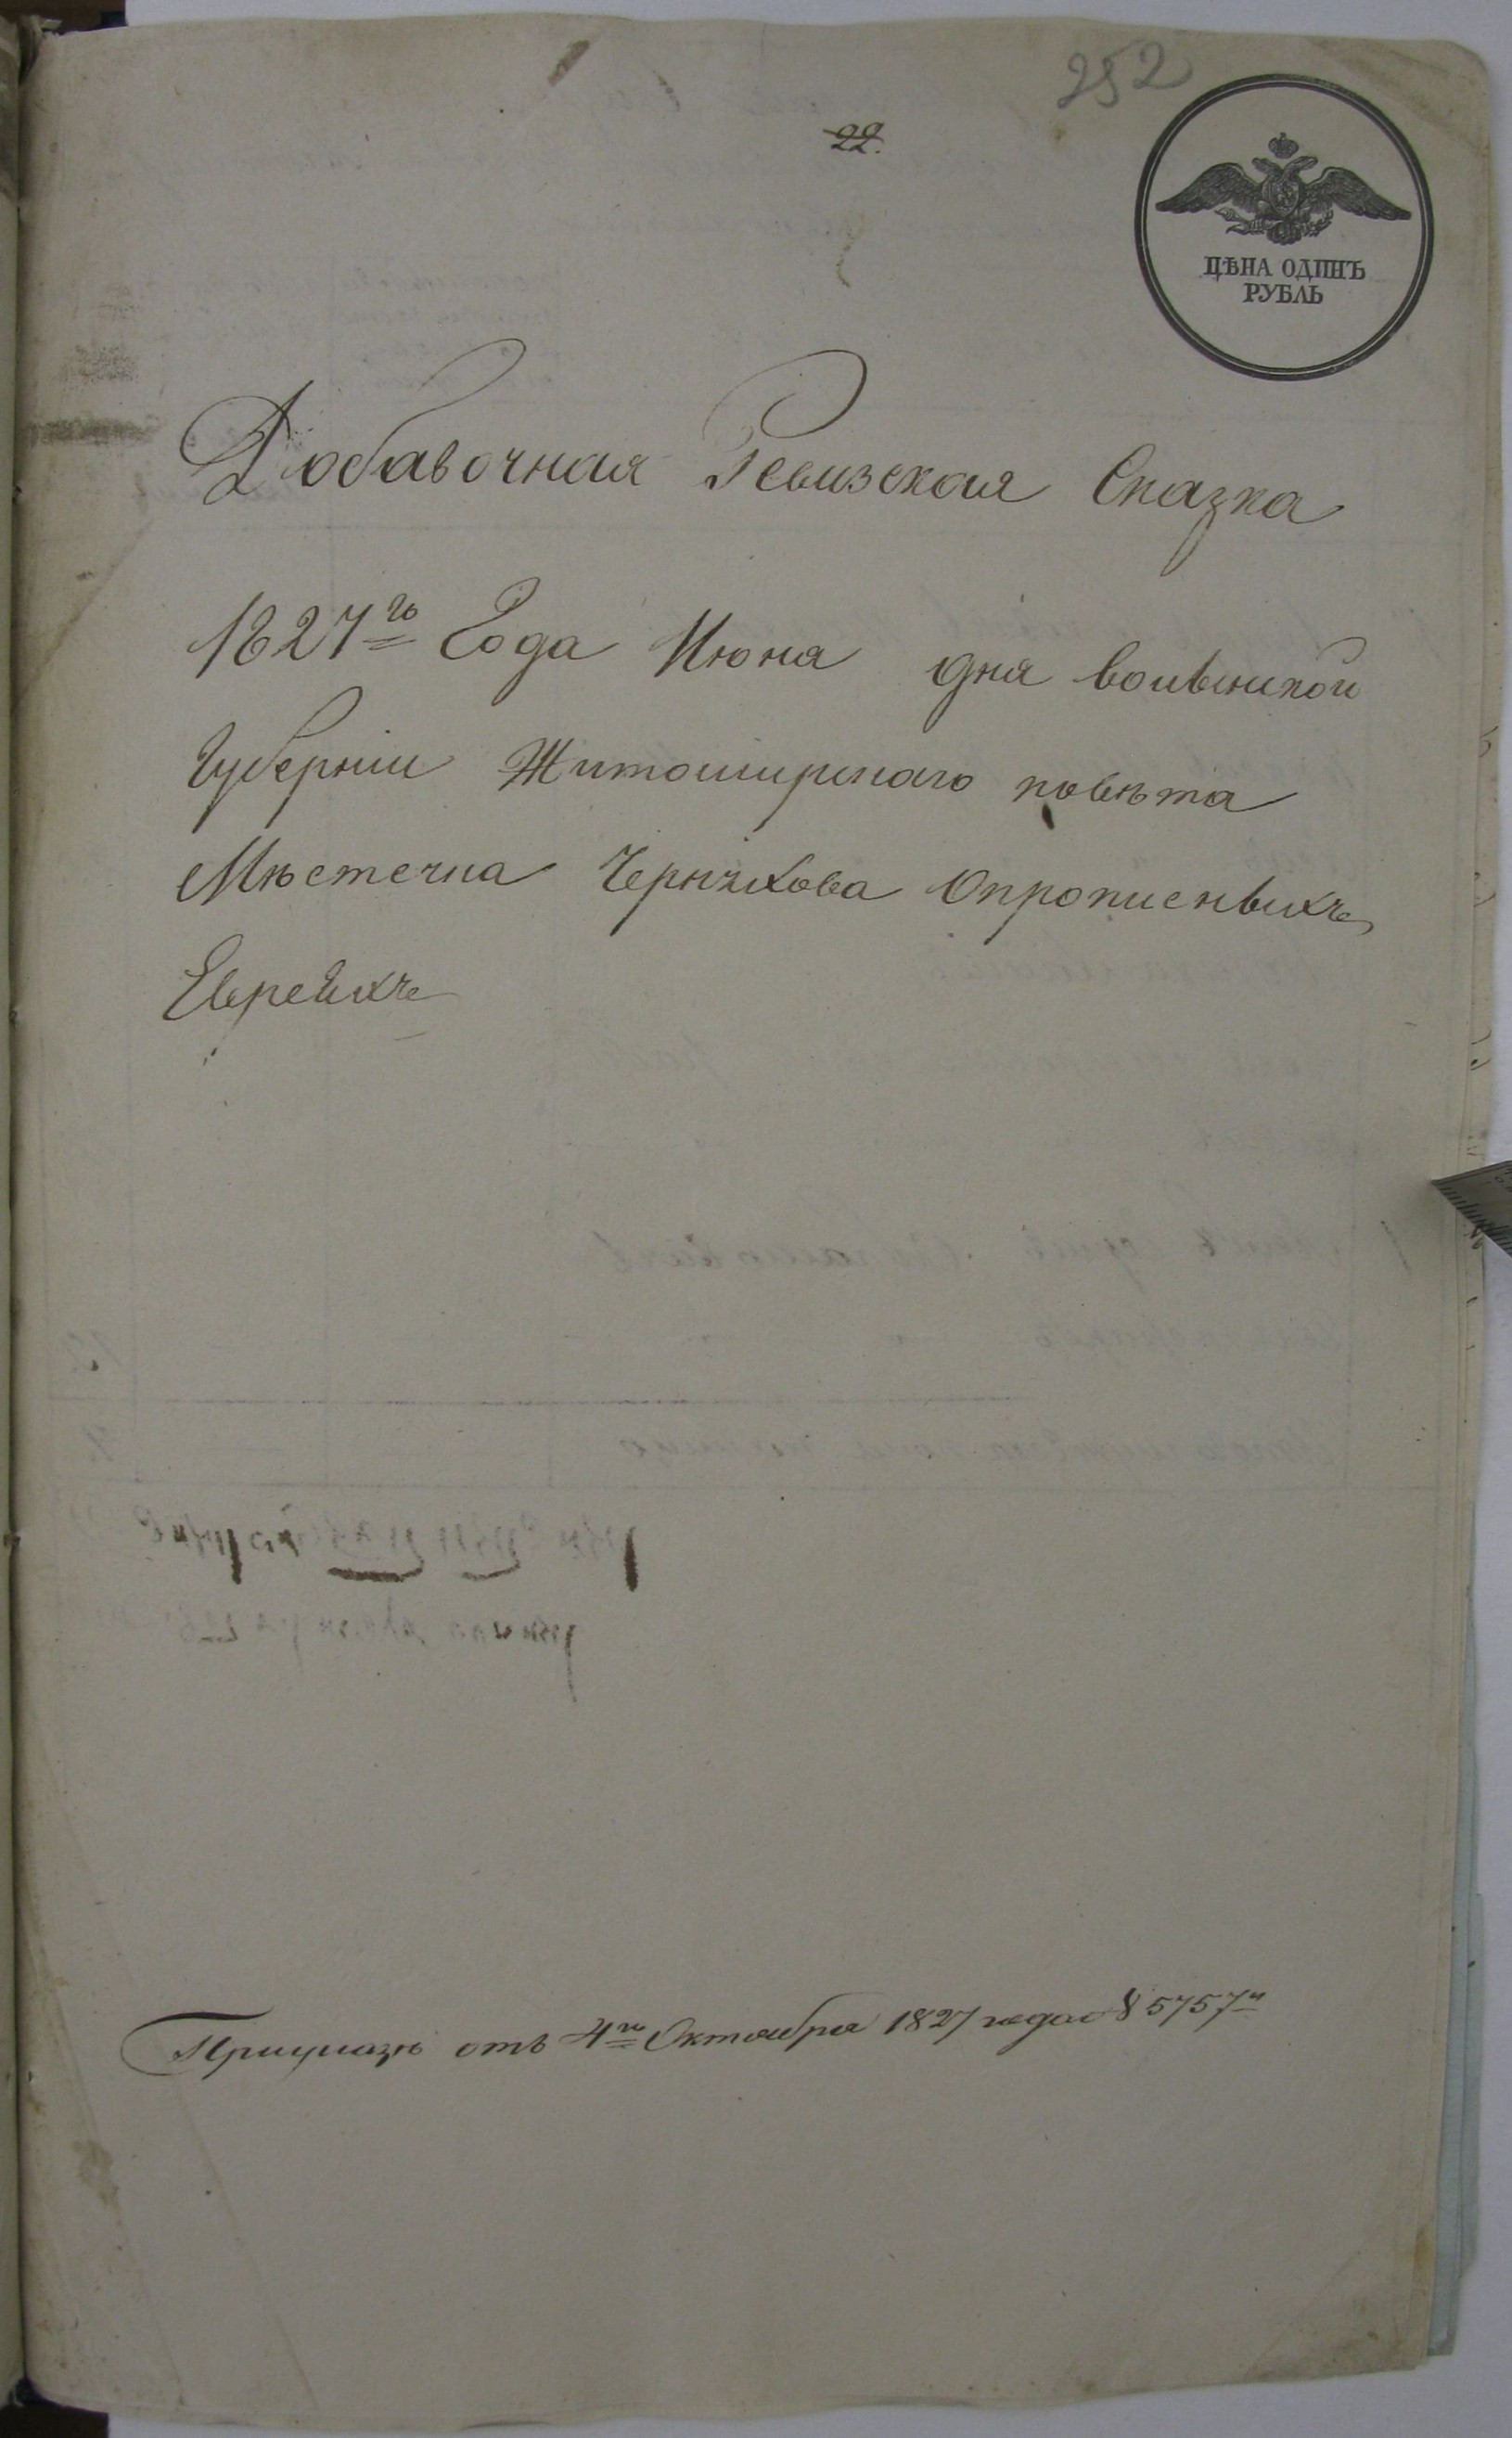 252
22.
ЦѢНА ОДИНЪ
РУБЛЬ
Добавочная Ревизская Сказка
1827го Года Июня дня волынской
Губернии Житомирскаго повѣта
Мѣстечка Черняхова Опрописныхъ
Евреихъ
При указѣ отъ 4го Октября 1827 года № 5757м